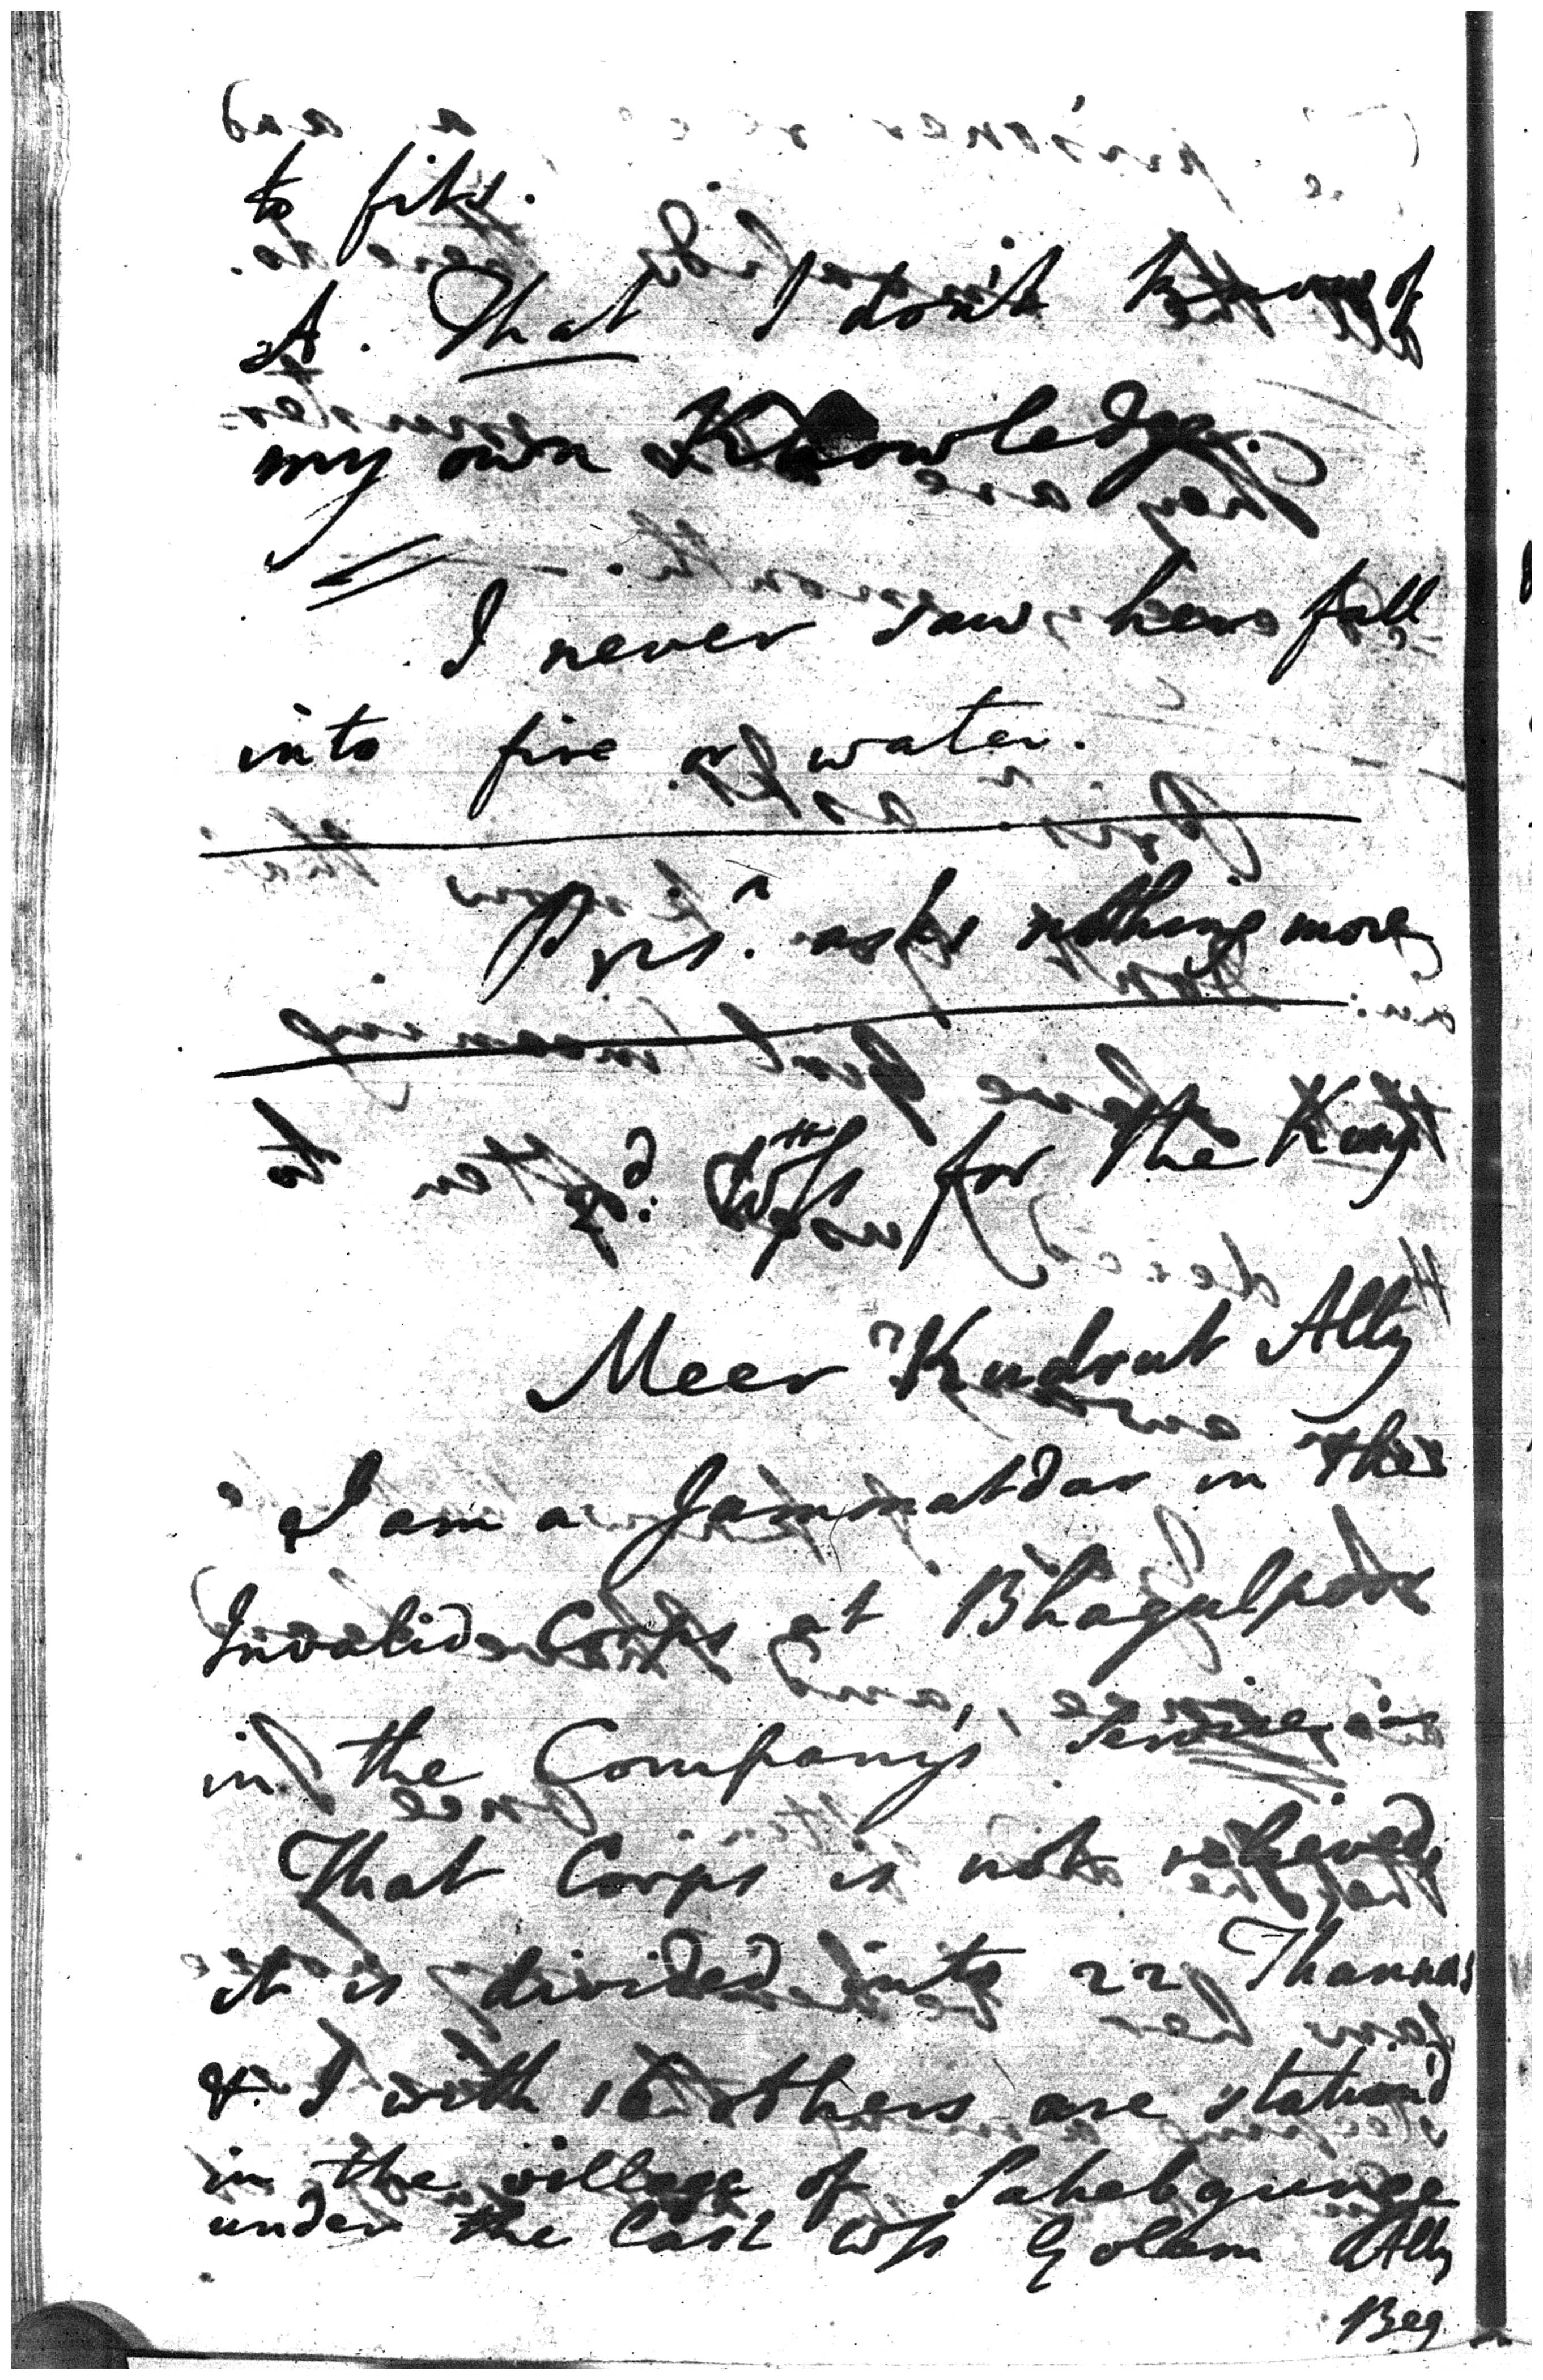 to fits.
A. That I don't know of
my own Knowledge.
I never saw her fall
into fire or water.
Prisr. asks nothing more
2d. Wss for the King
Meer Kudrut Ally
I am a Jammatdar in the
Invalid Corps at Bhagulpore
in the Company's service.
That Corps is not relieved,
it is divided into 22 Thannas
& I with 16 others are station'd
in the village of Sahebgunge
under the last Wss Golam Ally
Beg